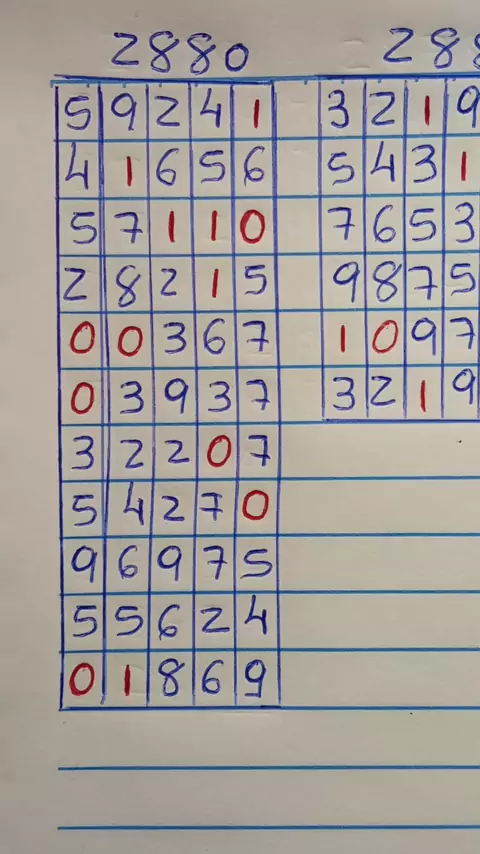 2880 288
5 9 2 4 1 3 2 1 9
4 1 6 5 6 5 4 3 1
5 7 1 1 0 7 6 5 3
2 8 2 1 5 9 8 7 5
0 0 3 6 7 1 0 9 7
0 3 9 3 7 3 2 1 9
3 2 2 0 7
5 4 2 7 0
9 6 9 7 5
5 5 6 2 4
0 1 8 6 9